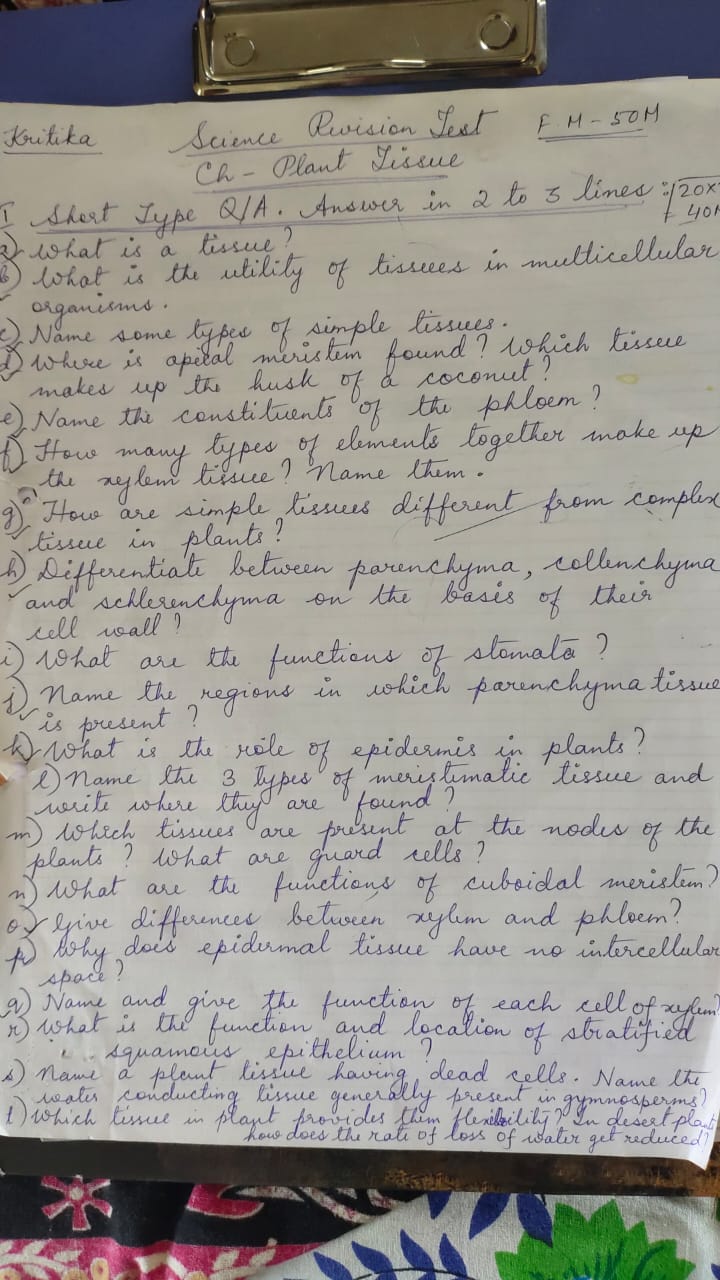 Kritika Science Revision Test F.M-50M
Ch - Plant Tissue
I Short Type Q/A. Answer in 2 to 3 lines :- 20x
40M
a) What is a tissue?
b) What is the utility of tissues in multicellular
organisms.
c) Name some types of simple tissues.
d) Where is apical meristem found? Which tissue
makes up the husk of a coconut?
e) Name the constituents of the phloem?
f) How many types of elements together make up
the xylem tissue? Name them.
g) How are simple tissues different from complex
tissue in plants?
h) Differentiate between parenchyma, collenchyma
and schlerenchyma on the basis of their
cell wall?
i) What are the functions of stomata?
j) Name the regions in which parenchyma tissue
is present?
k) What is the role of epidermis in plants?
l) Name the 3 types of meristimatic tissue and
write where they are found?
m) Which tissues are present at the nodes of the
plants? What are guard cells?
n) What are the functions of cuboidal meristem?
o) Give differences between xylem and phloem?
p) Why does epidermal tissue have no intercellular
space?
q) Name and give the function of each cell of xylem?
r) What is the function and location of stratified
squamous epithelium?
s) Name a plant tissue having dead cells. Name the
water conducting tissue generally present in gymnosperms?
t) Which tissue in plant provides them flexibility? In desert plants
how does the rate of loss of water get reduced?